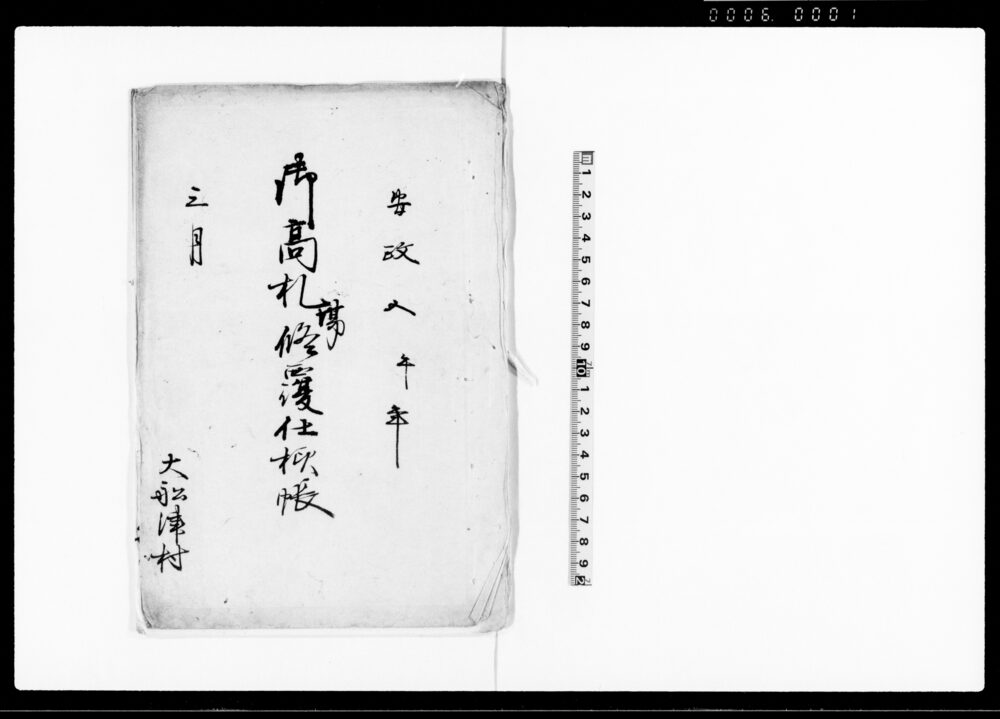 0006. 0001
安政五午年
御高札場修覆仕様帳
三月
大船津村
1 2 3 4 5 6 7 8 9 10 1 2 3 4 5 6 7 8 9 2